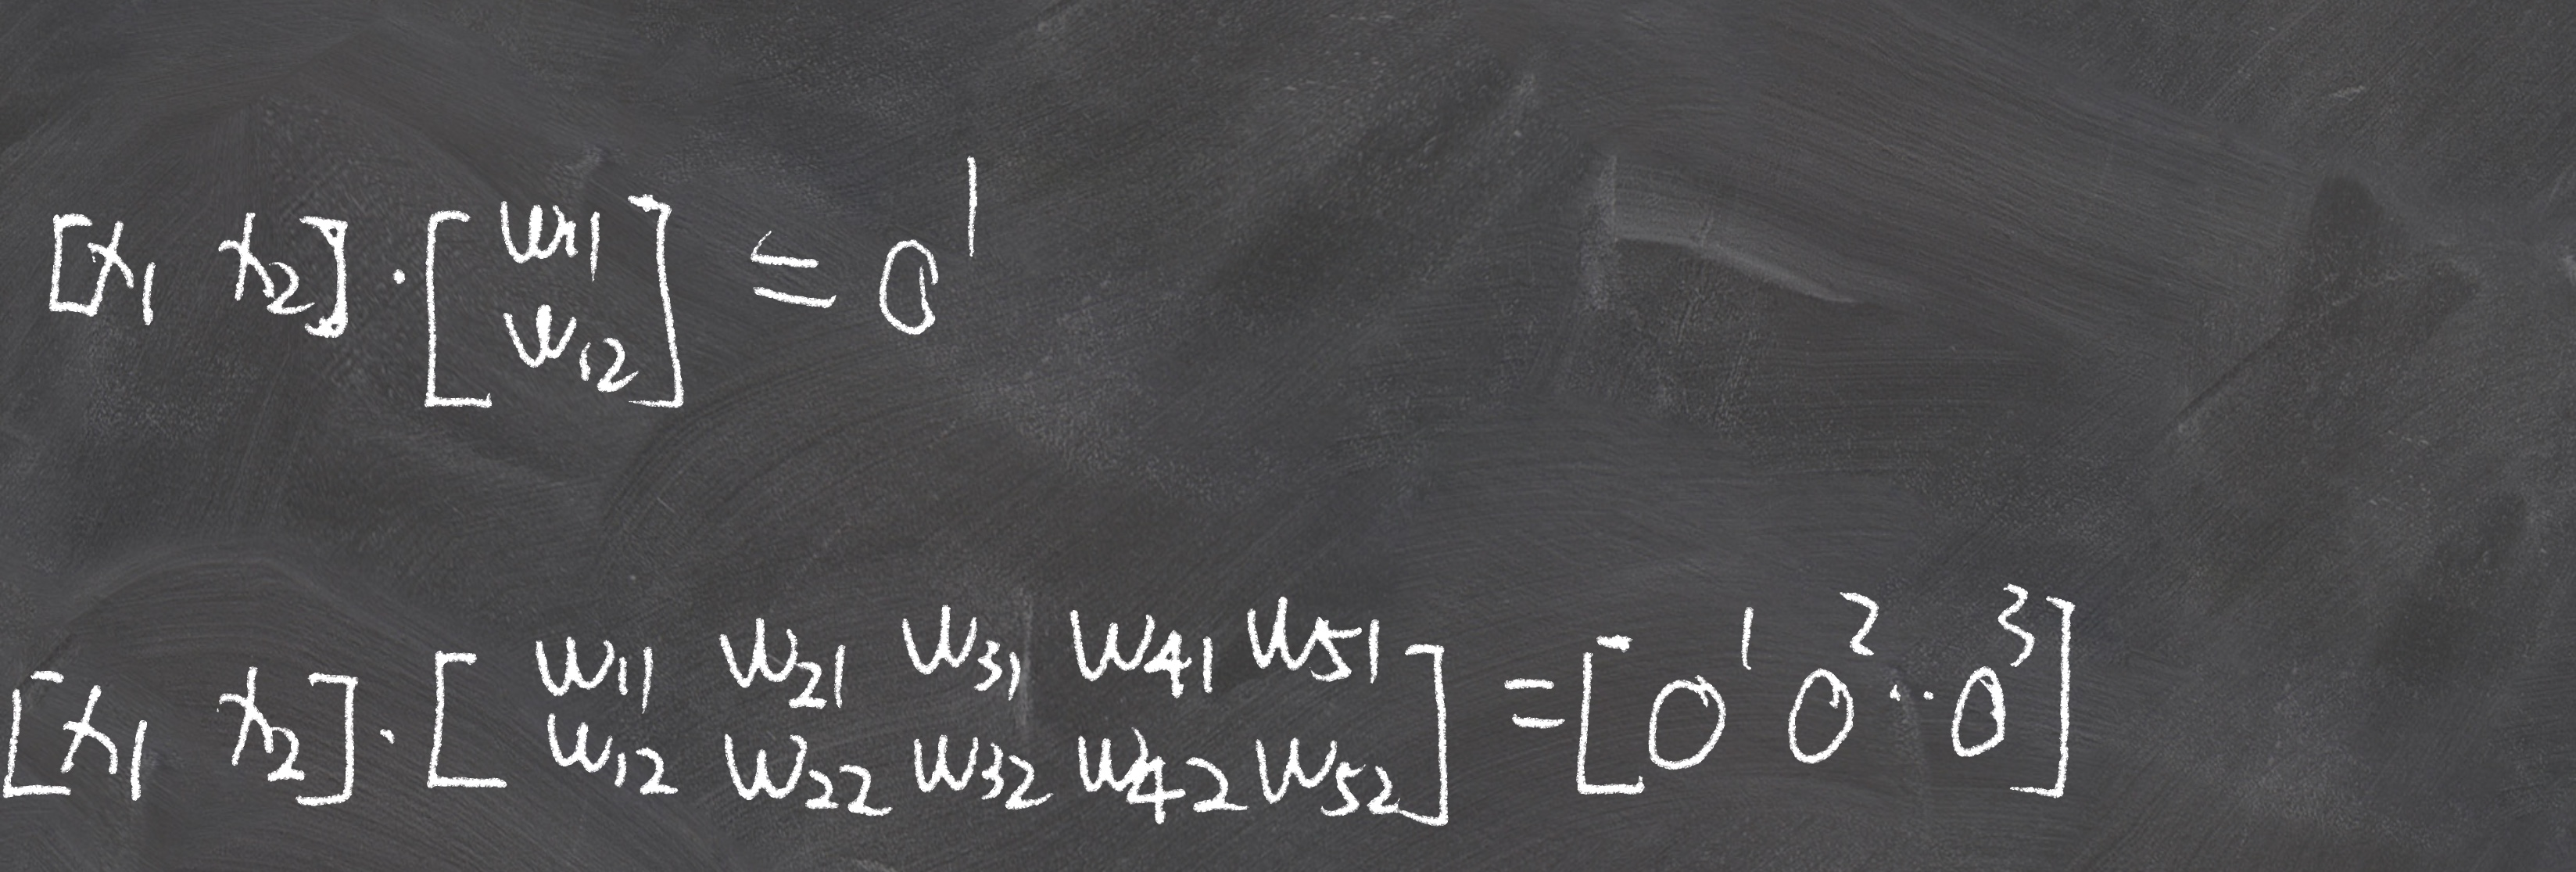 [x₁ x₂] · [w₁₁ w₁₂] = 0¹
[x₁ x₂] · [w₁₁ w₂₁ w₃₁ w₄₁ w₅₁
w₁₂ w₂₂ w₃₂ w₄₂ w₅₂] = [0¹ 0² ·· 0³]